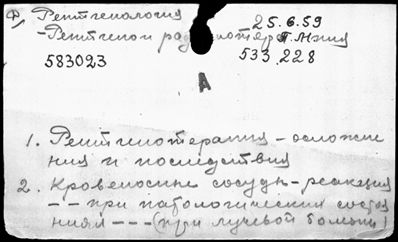 Ф, Рентгенология 25.6.59
-Рентгено и радиотерапия
583023 533.228
А
1. Рентгенотерапия - осложне
ния и последствия
2. Кровеносные сосуды - реакция
-- при патологических состоя
ниях --- (при лучевой болезни)